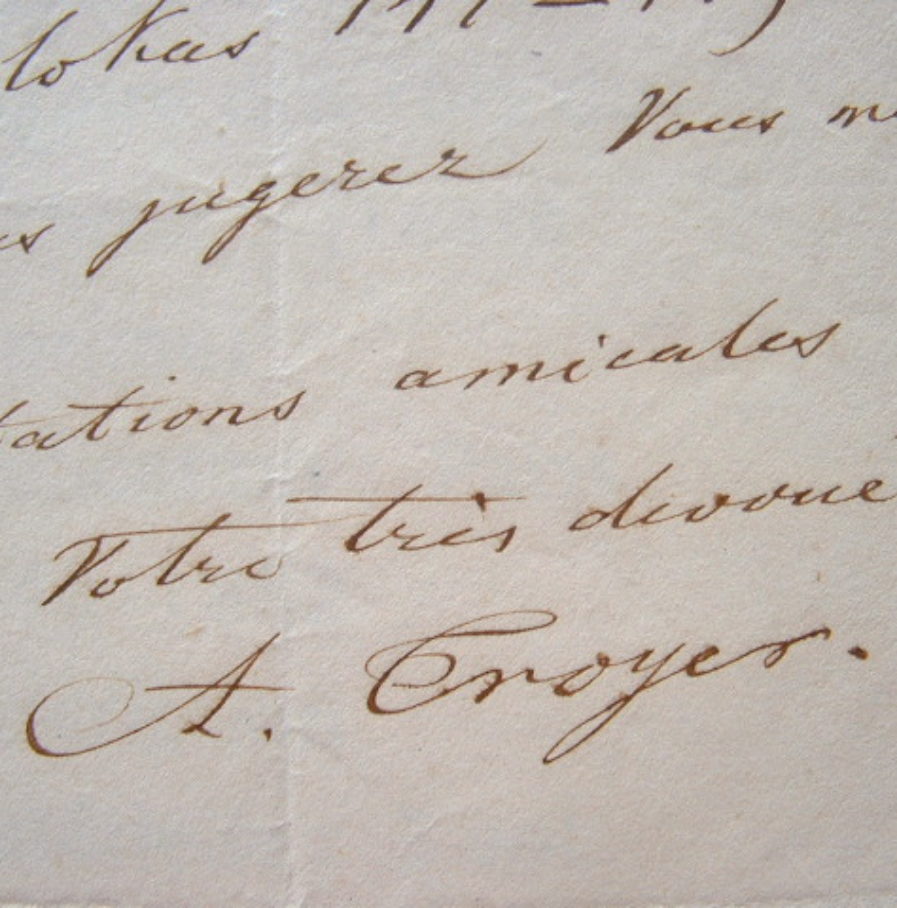 lokas
jugerez Vous
tations amicales
Votre très devoue
A. Troyer.